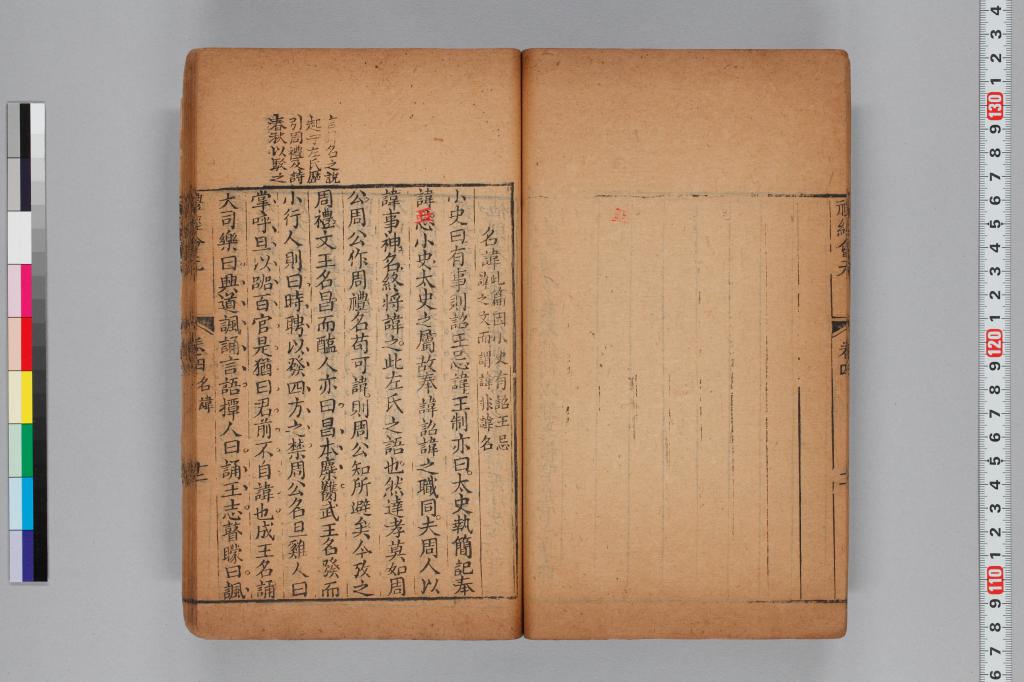 禮經會元
卷四
言名之說
起于左氏歷
引周禮及詩
春秋以駁之
名諱此篇因小史有詔王忌
諱之文而謂諱非諱名
小史曰有事則詔王忌諱王制亦曰太史執簡記奉
諱惡小史太史之屬故奉諱詔諱之職同夫周人以
諱事神名終將諱之此左氏之語也然達孝莫如周
公周公作周禮名苟可諱則周公知所避矣今攷之
周禮文王名昌而醢人亦曰昌本麋臡武王名發而
小行人則曰時聘以發四方之禁周公名旦雞人曰
掌呼旦以嘂百官是猶曰君前不自諱也成王名誦
大司樂曰興道諷誦言語撢人曰誦王志瞽矇曰諷
禮經會元
卷四 名諱